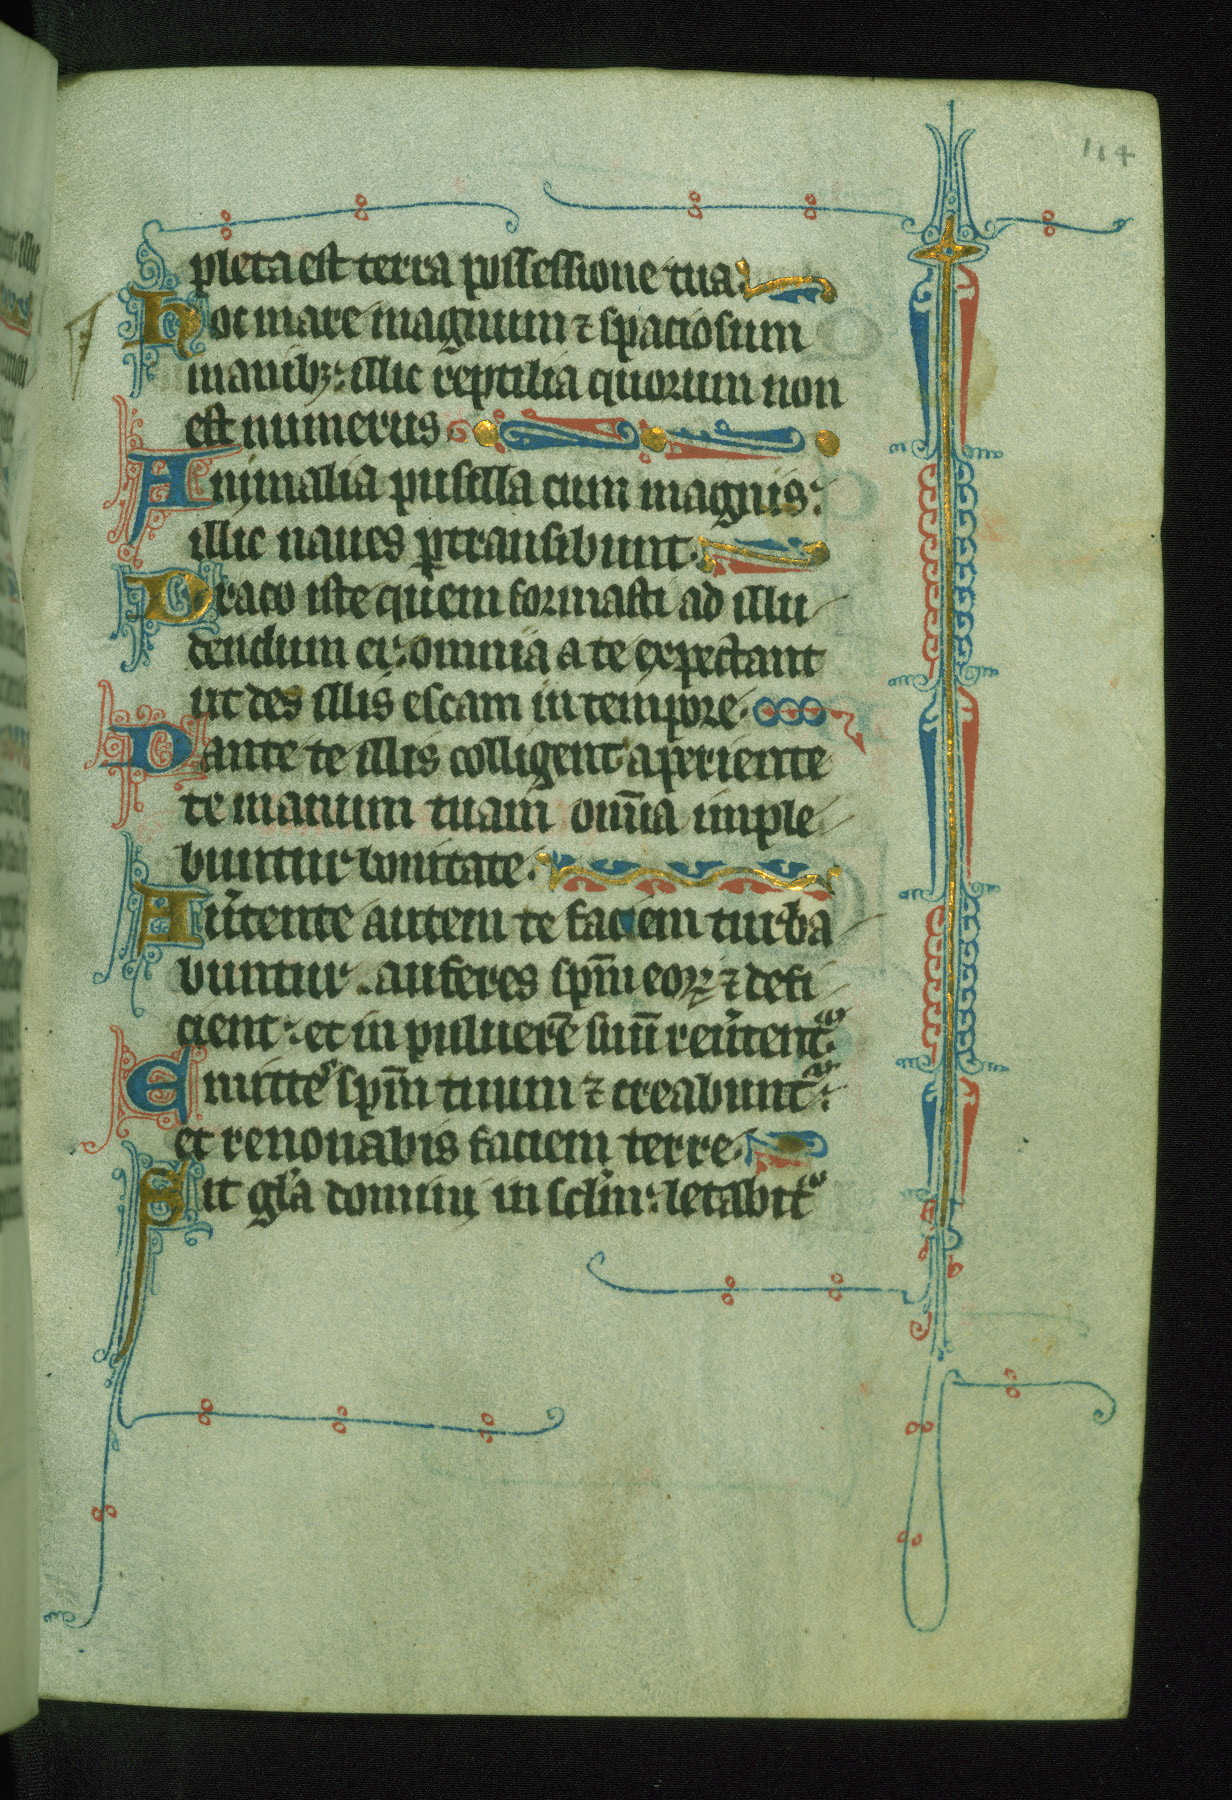 114
pleta est terra possessione tua.
Hoc mare magnum ⁊ spaciosum
manibꝫ: illic reptilia quorum non
est numerus
Animalia pusilla cum magnis:
illic naues ꝑtransibunt.
Draco iste quem formasti ad illu
dendum ei: omnia a te expectant
ut des illis escam in tempore.
Dante te illis colligent aperiente
te manum tuam om̄ia imple
buntur bonitate.
Au̾tente autem te faciem turba
buntur. auferes sp̄m eoꝝ ⁊ defi
cient: et in puluerē suū reu̾tentᷣ.
Emittᷣe sp̄m tuum ⁊ creabuntᷣ:
et renouabis faciem terre.
Sit gl̄a domini in sc̄lm: letabitᷣ